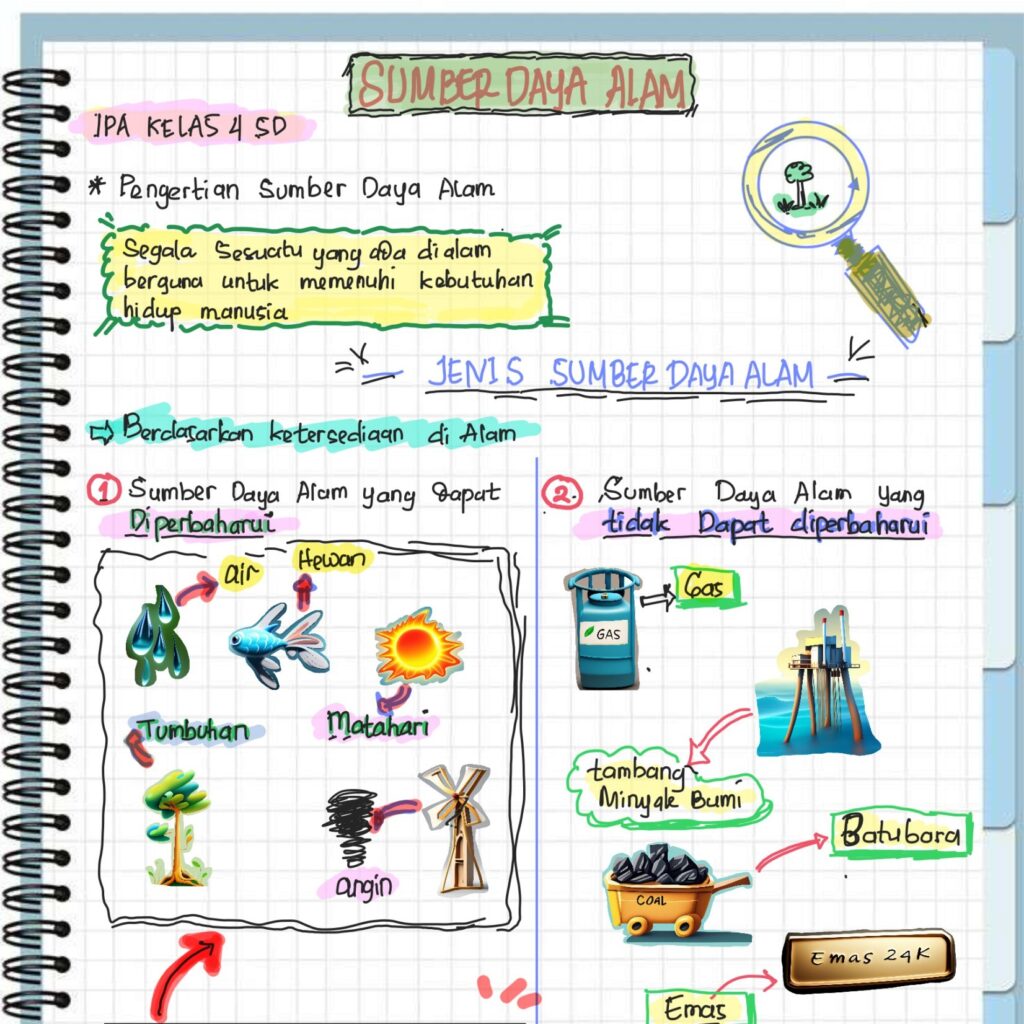 SUMBER DAYA ALAM
IPA KELAS 4 SD
* Pengertian Sumber Daya Alam
Segala Sesuatu yang ada di alam
berguna untuk memenuhi kebutuhan
hidup manusia
JENIS SUMBER DAYA ALAM
Berdasarkan ketersediaan di Alam
1 Sumber Daya Alam yang dapat
Diperbaharui
air
Hewan
Tumbuhan
Matahari
angin
2. Sumber Daya Alam yang
tidak Dapat diperbaharui
GAS
Gas
tambang
Minyak Bumi
Batubara
COAL
Emas 24K
Emas